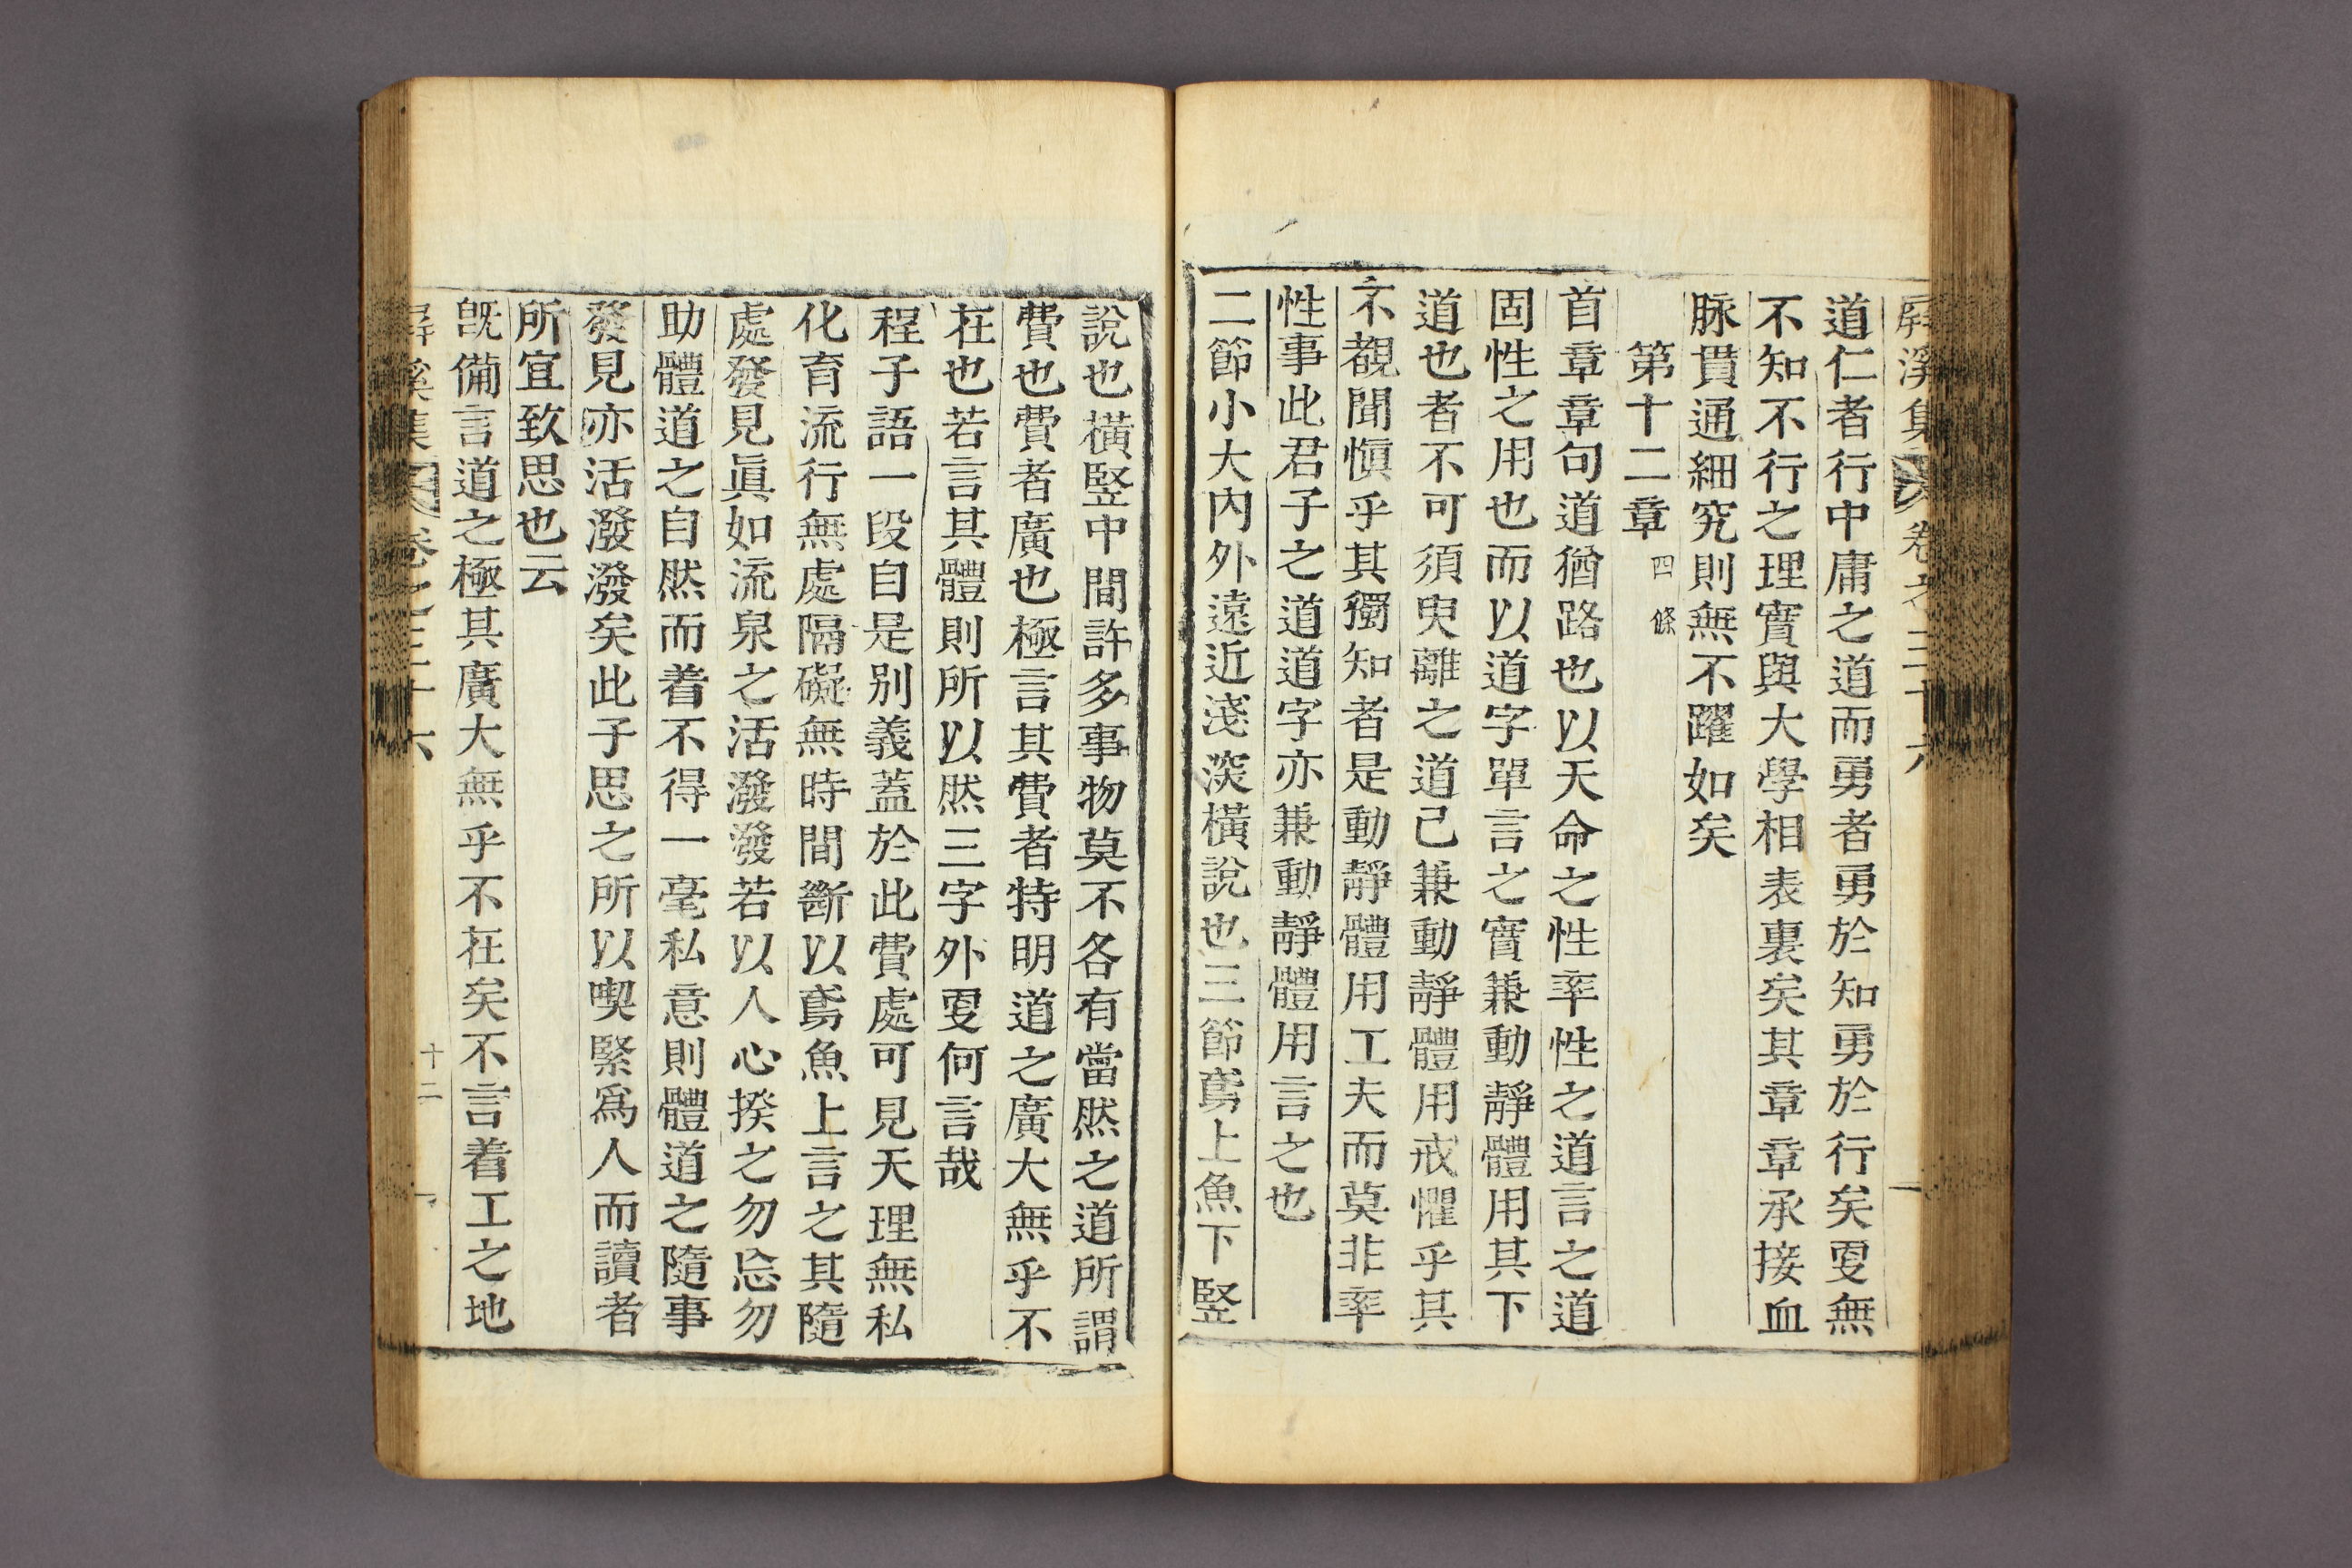 屛溪集 卷之三十六
道仁者行中庸之道而勇者勇於知勇於行矣更無
不知不行之理實與大學相表裏矣其章章承接血
脉貫通細究則無不躍如矣
第十二章 四條
首章章句道猶路也以天命之性率性之道言之道
固性之用也而以道字單言之實兼動靜體用其下
道也者不可須臾離之道已兼動靜體用戒懼乎其
不覩聞愼乎其獨知者是動靜體用工夫而莫非率
性事此君子之道道字亦兼動靜體用言之也
二節小大內外遠近淺深橫說也三節鳶上魚下竪
說也橫竪中間許多事物莫不各有當然之道所謂
費也費者廣也極言其費者特明道之廣大無乎不
在也若言其體則所以然三字外更何言哉
程子語一段自是別義蓋於此費處可見天理無私
化育流行無處隔礙無時間斷以鳶魚上言之其隨
處發見眞如流泉之活潑潑若以人心揆之勿忘勿
助體道之自然而着不得一毫私意則體道之隨事
發見亦活潑潑矣此子思之所以喫緊爲人而讀者
所宜致思也云
旣備言道之極其廣大無乎不在矣不言着工之地
屛溪集 卷之三十六 十二